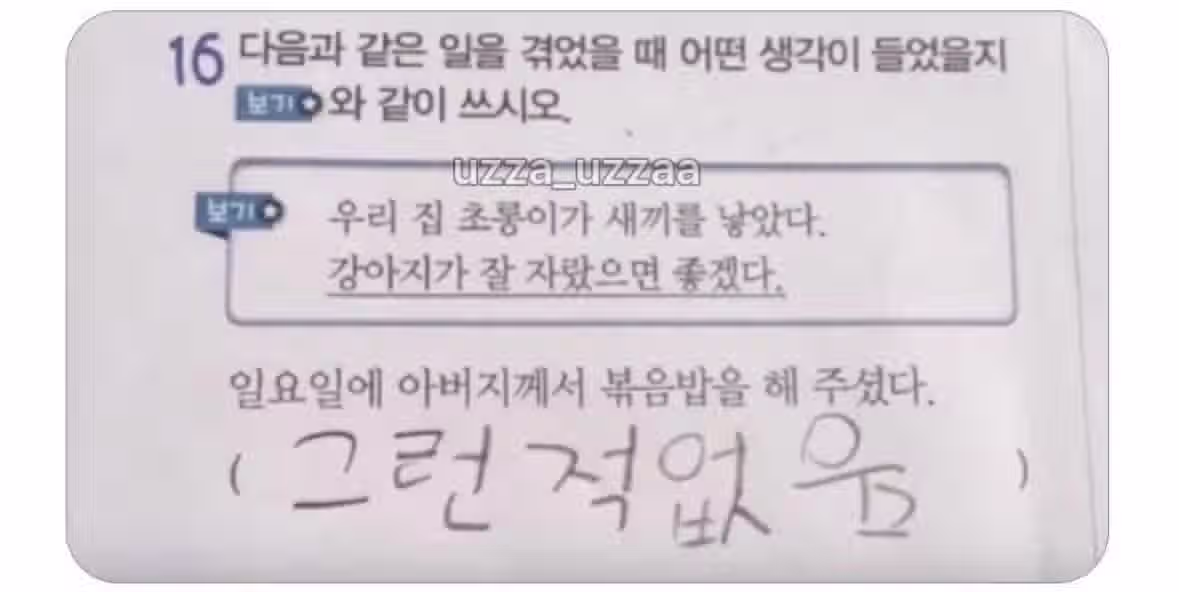 16 다음과 같은 일을 겪었을 때 어떤 생각이 들었을지
보기 와 같이 쓰시오.
uzza_uzzaa
보기 우리 집 초롱이가 새끼를 낳았다.
강아지가 잘 자랐으면 좋겠다.
일요일에 아버지께서 볶음밥을 해 주셨다.
( 그런 적 없음 )